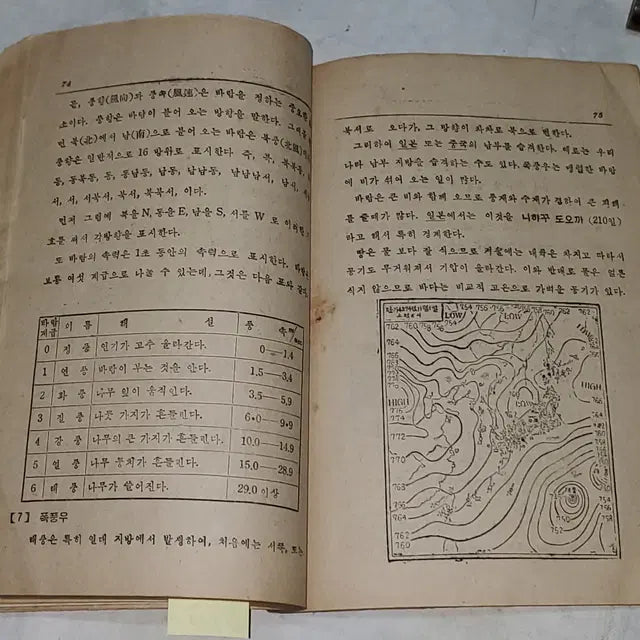 74
는, 풍향(風向)과 풍속(風速)은 바람을 정하는 중요한
소이다. 풍향은 바람이 불어 오는 방향을 말한다. 그러므로
면 북(北)에서 남(南)으로 불어 오는 바람은 북풍(北風)
풍향은 일반적으로 16 방위로 표시한다. 즉, 북, 북북동,
동, 동북동, 동, 동남동, 남동, 남남동, 남남남서, 남서,
서, 서, 서북서, 북서, 북북서, 이다.
먼저 그림에 북을 N, 동을 E, 남을 S, 서를 W 로
호를 써서 각방향을 표시한다.
또 바람의 속력은 1초 동안의 속력으로 표시한다.
보통 여섯 계급으로 나눌 수 있는데, 그것은 다음 표와 같다.
바람계급 이 름 해 설 풍 속 m/sec
0 정 풍 연기가 고추 올라간다. 0—1.4
1 연 풍 바람이 부는 것을 안다. 1.5—3.4
2 화 풍 나무 잎이 움직인다. 3.5—5.9
3 질 풍 나뭇 가지가 흔들린다. 6.0—9.9
4 강 풍 나무의 큰 가지가 흔들린다. 10.0—14.9
5 열 풍 나무 둥치가 흔들린다. 15.0—28.9
6 태 풍 나무가 쓸어진다. 29.0 이상
[7] 폭풍우
태풍은 특히 열대 지방에서 발생하여, 처음에는 서쪽, 또는
75
북서로 오다가, 그 방향이 차차로 북으로 변한다.
그리하여 일본 또는 중국의 남부를 습격한다. 때로는 우리
나라 남부 지방을 습격하는 수도 있다. 폭풍우는 맹렬한 바람
에 비가 섞여 오는 일이 많다.
바람은 큰 비와 함께 오므로 풍재와 수재가 겸하여 큰 피해
를 줄때가 많다. 일본에서는 이것을 니햐꾸 도오까 (210일)
라고 해서 특히 경계한다.
땅은 물 보다 잘 식으므로 겨울에는 대륙은 차지고 따라서
공기도 무거워져서 기압이 올라간다. 이와 반대로 물은 얼른
식지 않으므로 바다는 비교적 고온으로 가벼운 공기가 있다.
LOW
754 756 760 762
LOW
762 760 758 756 754
LOW
HIGH
HIGH
766
764
776
774
772
770
768
766
764
762
760
754
756
758
752
750